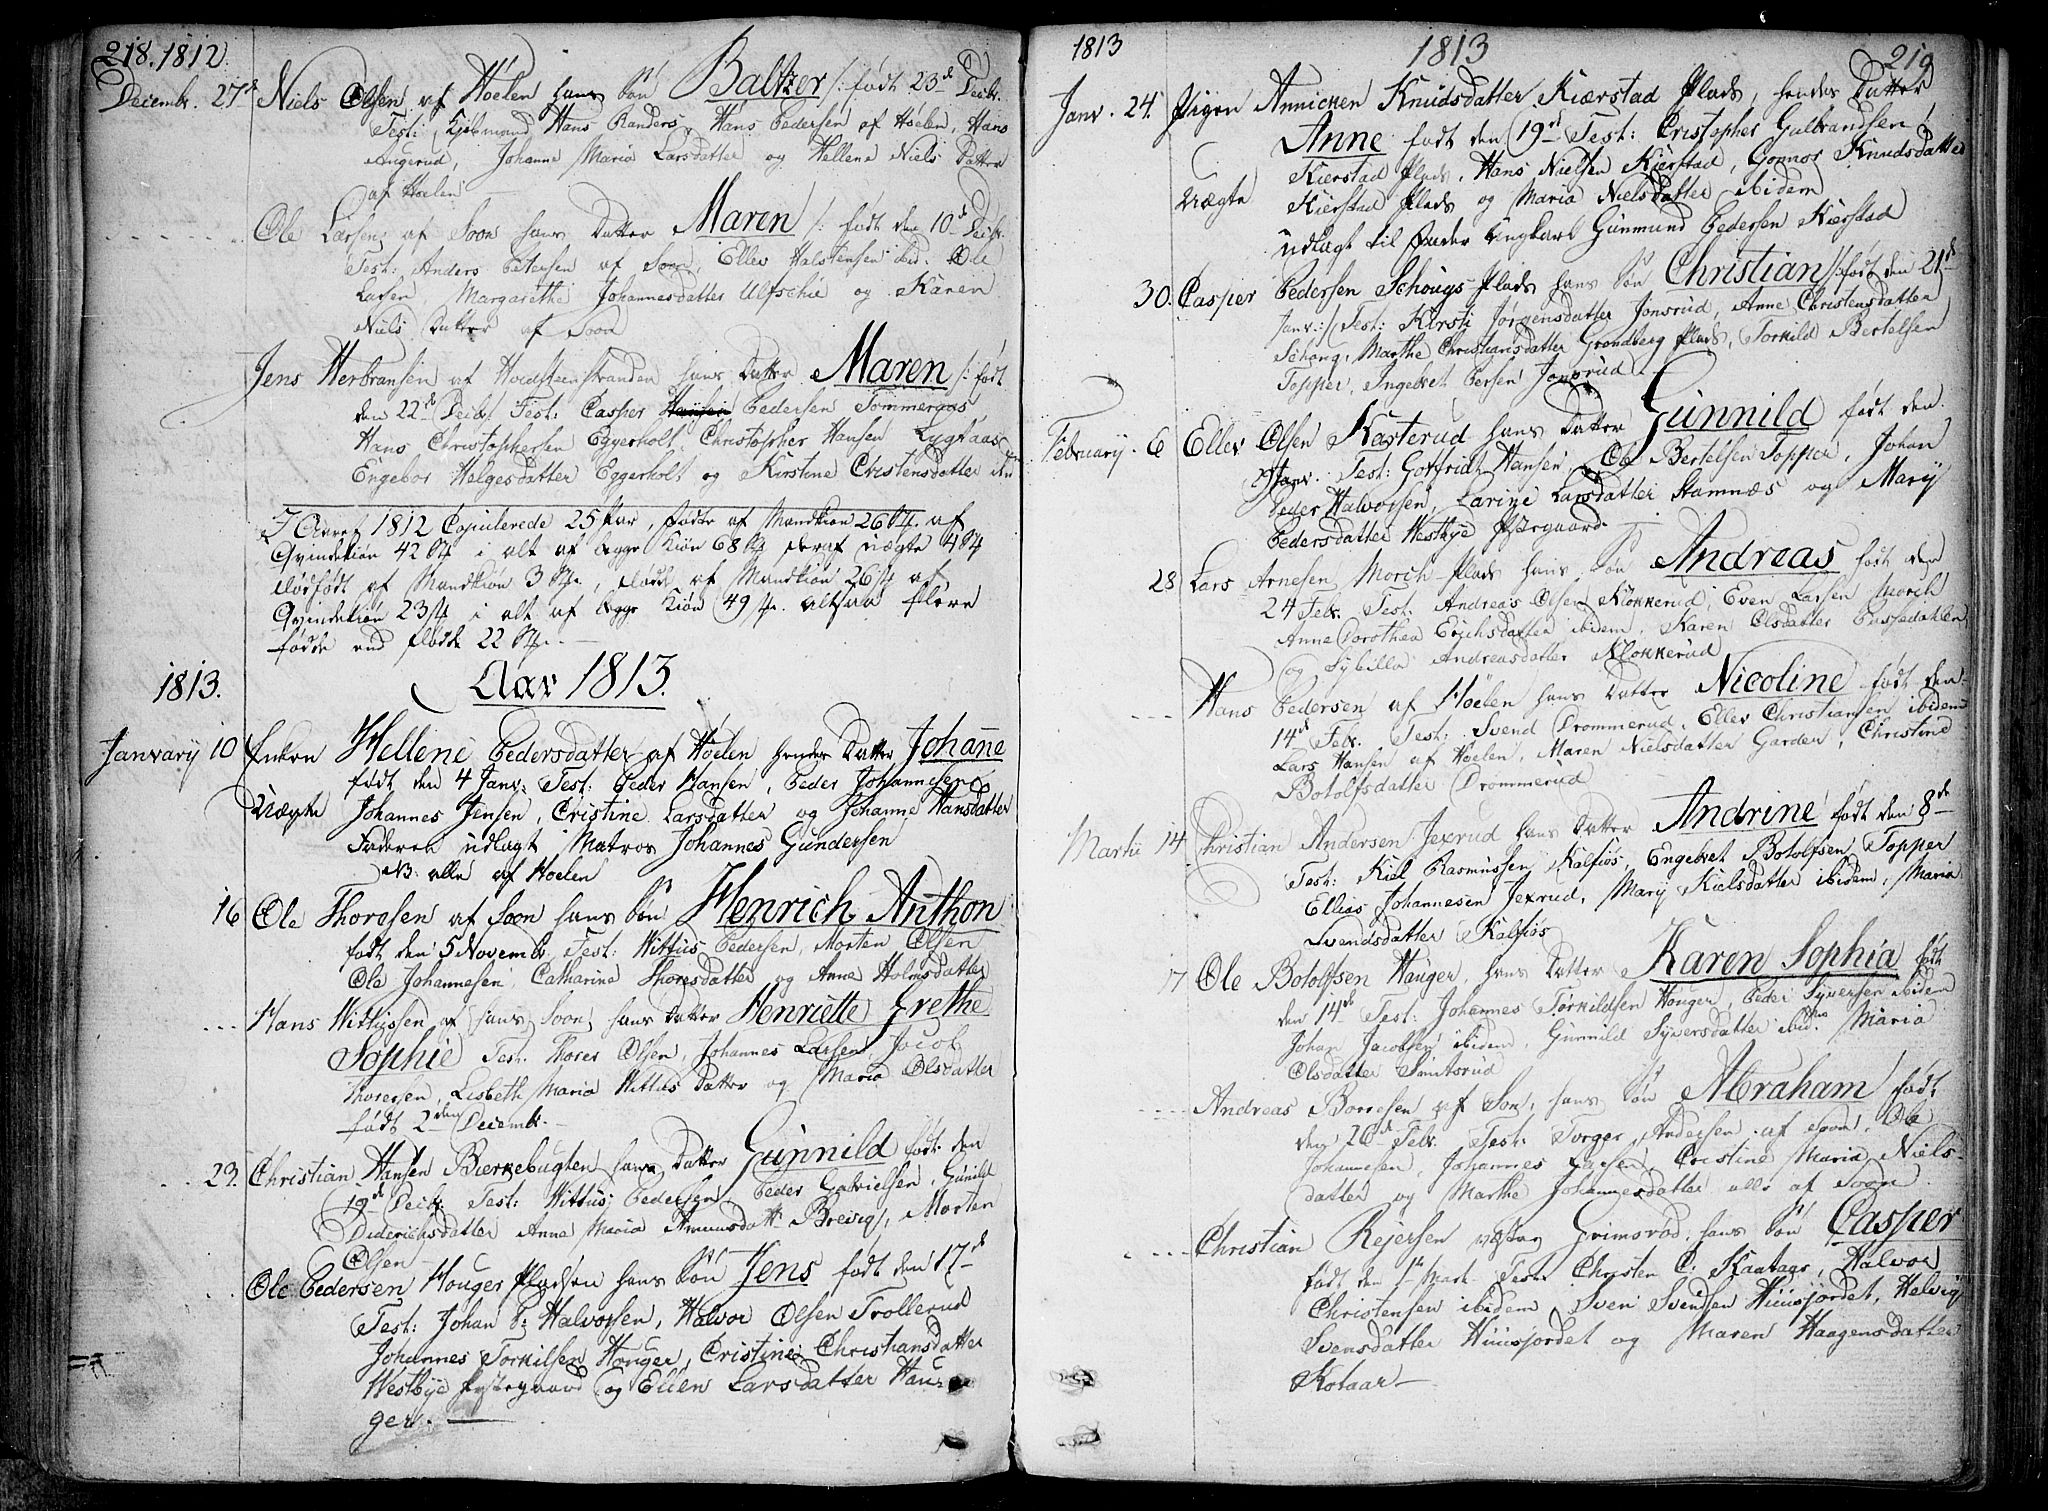 218. 1812.
Decembr. 27de Niels Olsen af Hölen hans Sön Baltzer /: födt 23de Decbr.
Test: Kjöbmand Hans Randers, Hans Pedersen af Hölen, Hans
Angerud, Johanne Maria Larsdatter og Hellene Niels Datter
af Hölen
Ole Larsen af Soon hans Datter Maren /: födt den 10de Decbr.
Test: Anders Petersen af Soon, Ellev Halstensen ibid. Ole
Larsen, Margarethe Johannesdatter Ulfschie og Karen
Niels Datter af Soon
Jens Herbransen af Hvidsteenstranden hans Datter Maren /: födt
den 22de Decbr. Test: Casper Pedersen Tommeraas,
Hans Christophersen Eggerholt, Christopher Hansen Lygtaas
Engebor Helgesdatter Eggerholt og Kirstine Christensdatter ibid
I Aaret 1812 Copulerede 25 Par, födte af Mandkiön 26 St. af
Qvindekiön 42 St i alt af begge Kiön 68 St deraf uægte 4 St
dödfödt af Mandkiön 3 St., döde af Mandkiön 26 St af
Qvindekiön 23 St i alt af begge Kiön 49 St. altsaa flere
födde end döde 22 St.
1813. Aar 1813.
Januarij 10 Enken Hellene Pedersdatter af Hölen hendes Datter Johanne
födt den 4 Janv: Test: Peder Hansen, Peder Johannesen
Uægte Johannes Jensen, Cristine Larsdatter og Johanne Hansdatter
Faderen udlagt Matros Johannes Gundersen
NB: alle af Hölen
16 Ole Thoresen af Soon hans Sön Henrich Anthon
födt den 5 Novembr. Test: Wittus Pedersen, Morten Olsen
Ole Johannesen, Catharine Thoresdatter og Anne Holmsdatter
Hans Wittussen af hans Soon, hans Datter Henriette Grethe
Sophie Test: Thores Olsen, Johannes Larsen, Jacob
Thoresen, Lisbeth Maria Wittus Datter og Maria Olsdatter
födt 2den Decembr.
23. Christian Hansen Bierkebugten hans Datter Gunnild födt den
19de Decbr. Test: Wittus Pedersen, Peder Gabrielsen, Gunild
Diderichsdatter Anne Maria Amunsdatt Brevig, Morten
Olsen
Ole Pedersen Houger Pladsen hans Sön Jens födt den 17de
Test: Johan P: Halvorsen, Halvor Olsen Trollerud
Johannes Torkilsen Houger, Cristine Christiansdatter
Westbye Præstegaard og Ellen Larsdatter Hau-
ger.
1813 1813 219
Janv. 24. Pigen Annicken Knudsdatter Kierstad Plads, hendes Datter
Anne födt den 19de Test: Cristopher Gulbrandsen
Kierstad Plads, Hans Nielsen Kierstad, Gonnor Knudsdatter
Uægte Kierstad Plads og Maria Nielsdatter ibidem
udlagt til Fader Ungkarl Gunmund Pedersen Kierstad
30. Casper Pedersen Schougs Plads hans Sön Christian /: födt den 21de
Janv: / Test: Kirsti Jörgensdatter Jonsrud, Anne Christensdatter
Schoug, Marthe Christiansdatter Grondberg Plads, Torkild Bertelsen
Topper, Ingebret Persen Jonsrud
February. 6 Ellev Olsen Karterud hans Datter Gunnild födt den
Janv. Test: Gotfridt Hansen, Ole Bertelsen Topper, Johan
Peder Halvorsen, Larine Larsdatter Stamnæs og Marij
Pedersdatter Westbye Præstegaard.
28 Lars Arnesen Morch Plads hans Sön Andreas födt den
24 Febr. Test: Andreas Olsen Klokkerud, Even Larsen Morch
Anne Dorothea Erichsdatter ibidem, Karen Olsdatter
og Sybilla Andreasdatter Klokkerud
Hans Pedersen af Hölen hans Datter Nicoline födt den
14de Febr. Test: Svend Drommerud, Ellev Christiansen ibidem
Lars Hansen af Hölen, Maren Nielsdatter Garder, Christine
Botolfsdatter Drommerud
Martii 14 Christian Andersen Jexrud hans Datter Andrine födt den 8de
Test: Kiel Rasmussen Kalfös, Engebret Botolfsen Topper
Ellias Johannesen Jexrud, Marij Kielsdatter ibidem, Maria
Svendsdatter Kalfiös
17 Ole Botolfsen Hauger, hans Datter Karen Sophia födt
den 14de Test: Johannes Torkildsen Houger, Peder Syversen ibidem
Johan Jacobsen ibidem, Gunnild Syversdatter ibid. Maria
Olsdatter Smitsrud
Andreas Borresen af Son, hans Sön Abraham födt
den 26de Febr. Test: Torger Andersen af Soon, Ole
Johannesen, Johannes Larsen, Cristine Maria Niels-
datter og Marthe Johannesdatter alle af Soon
Christian Rejersen Grimsröd, hans Sön Casper
födt den 1te Mart. Test: Christen C: Kaataar, Halvor
Christensen ibidem Sven Svensen Huusjordet, Helvig
Svensdatter Huusjordet og Maren Haagensdatter
Kotaar